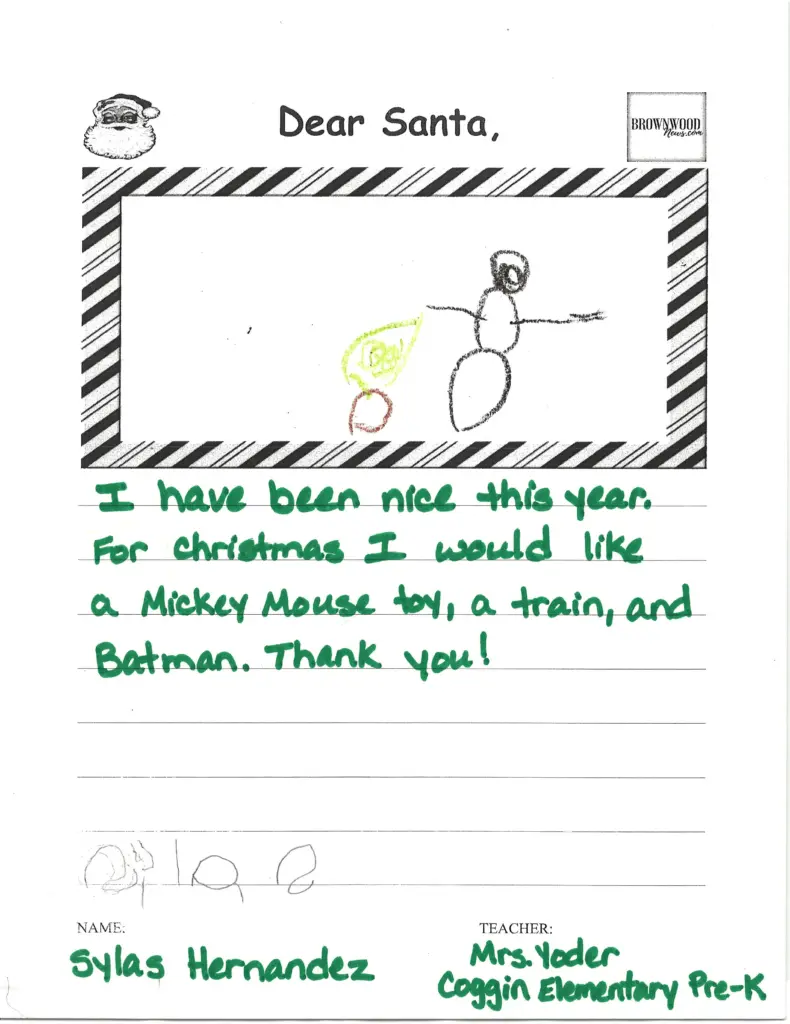 Dear Santa,
BROWNWOOD
News.com
I have been nice this year.
For Christmas I would like
a Mickey Mouse toy, a train, and
Batman. Thank you!
NAME:
Sylas Hernandez
TEACHER:
Mrs. Yoder
Coggin Elementary Pre-K